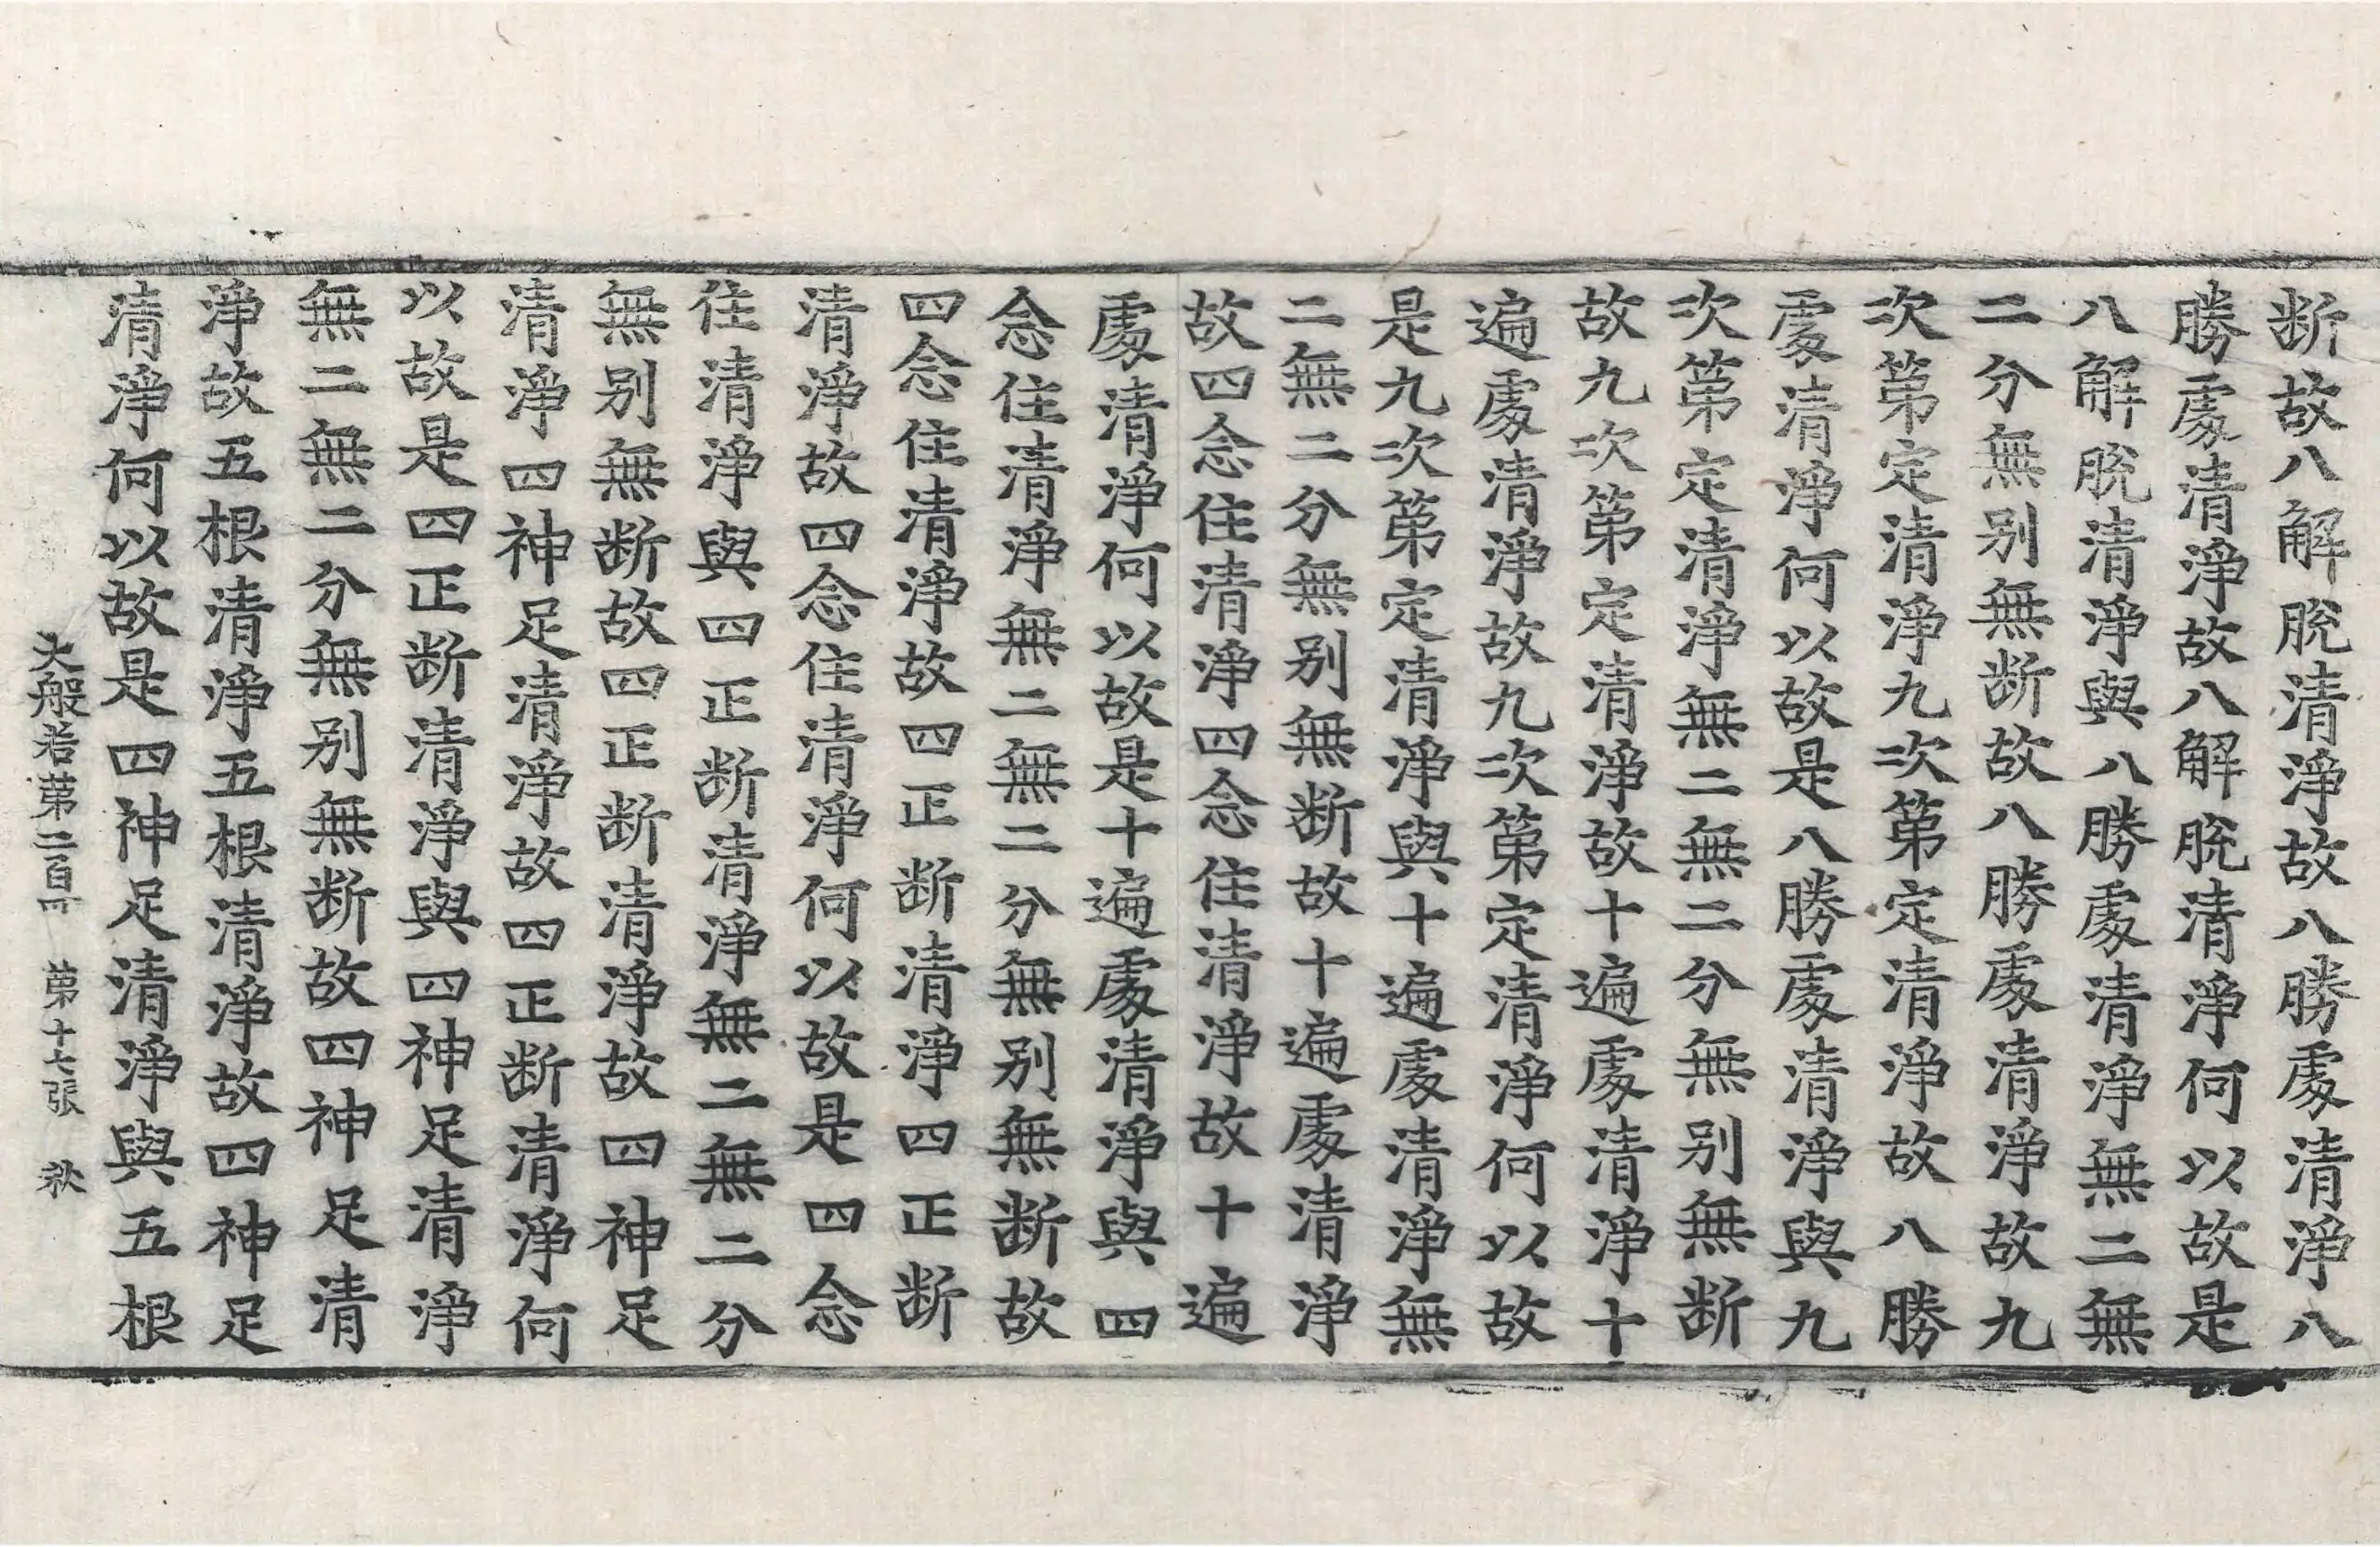 断故八解脫清淨故八勝處清淨八
勝處清淨故八解脫清淨何以故是
八解脫清淨與八勝處清淨無二無
二分無别無断故八勝處清淨故九
次第定清淨九次第定清淨故八勝
處清淨何以故是八勝處清淨與九
次第定清淨無二無二分無别無断
故九次第定清淨故十遍處清淨十
遍處清淨故九次第定清淨何以故
是九次第定清淨與十遍處清淨無
二無二分無别無断故十遍處清淨
故四念住清淨四念住清淨故十遍
處清淨何以故是十遍處清淨與四
念住清淨無二無二分無别無断故
四念住清淨故四正断清淨四正断
清淨故四念住清淨何以故是四念
住清淨與四正断清淨無二無二分
無别無断故四正断清淨故四神足
清淨四神足清淨故四正断清淨何
以故是四正断清淨與四神足清淨
無二無二分無别無断故四神足清
淨故五根清淨五根清淨故四神足
清淨何以故是四神足清淨與五根
大般若第二百四 第十七張 秋